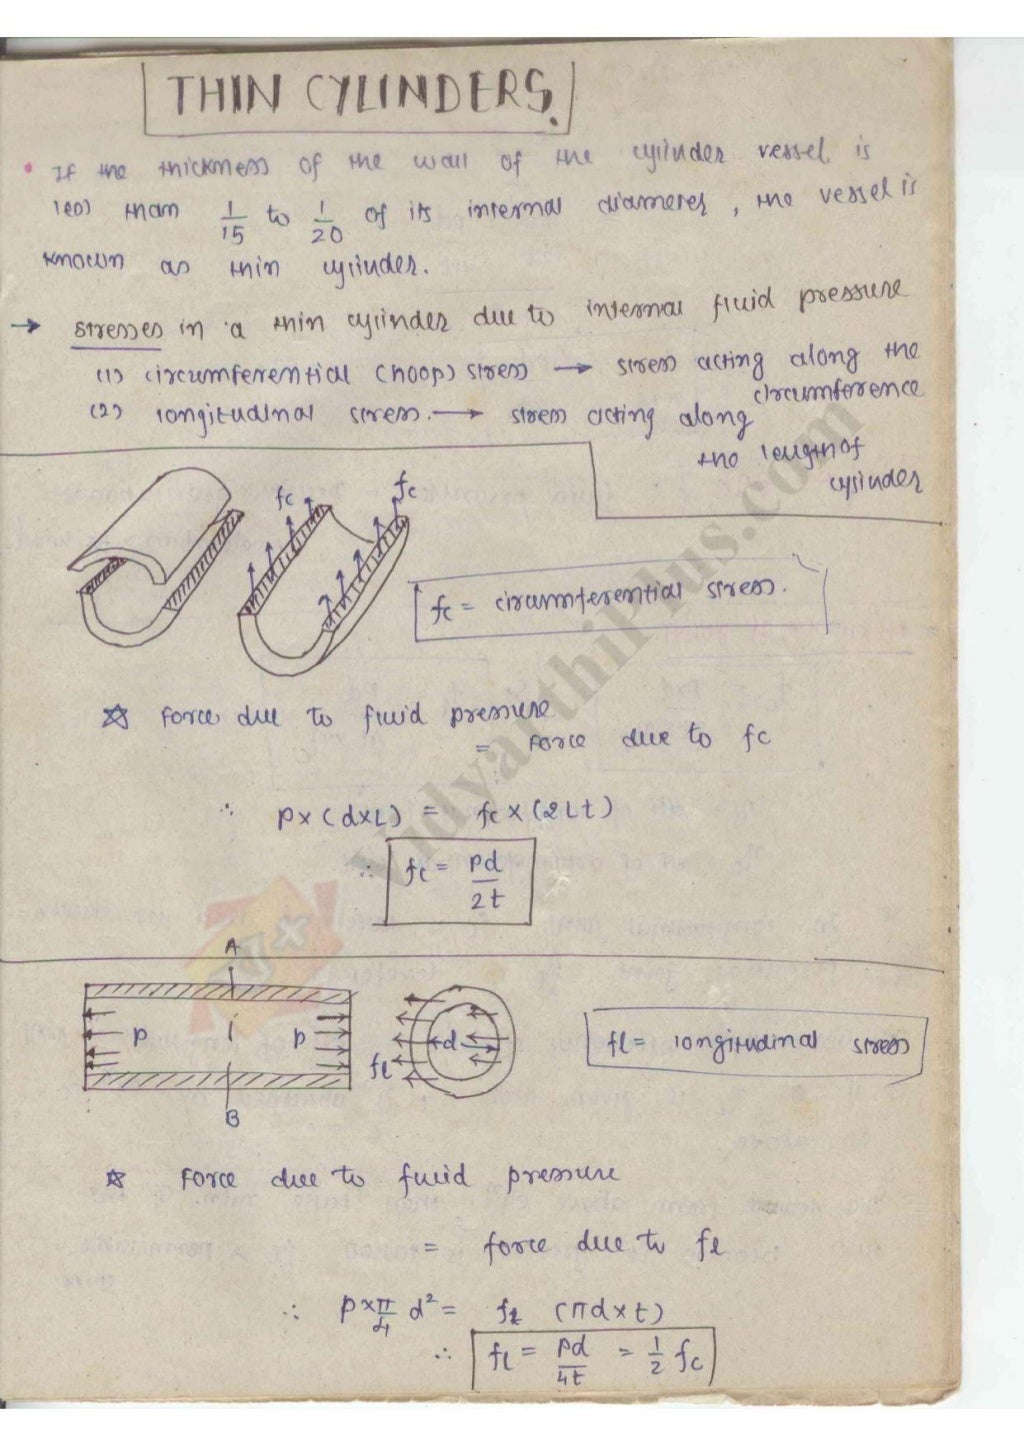 THIN CYLINDERS.
• If the thickness of the wall of the cylinder vessel is
less than 1/15 to 1/20 of its internal diameter, the vessel is
known as thin cylinder.
→ stresses in a thin cylinder due to internal fluid pressure
(1) circumferential (hoop) stress → stress acting along the
circumference
(2) longitudinal stress. → stress acting along
the length of
cylinder
fc fc
fc = circumferential stress.
☆ Force due to fluid pressure
= force due to fc
∴ p×(d×L) = fc×(2Lt)
∴ fc = pd/2t
A
p p
fl d
B
fl = longitudinal stress
☆ Force due to fluid pressure
= force due to fl
∴ p×π/4 d² = fl (πd×t)
∴ fl = pd/4t = 1/2 fc
VidyarthiPlus.com